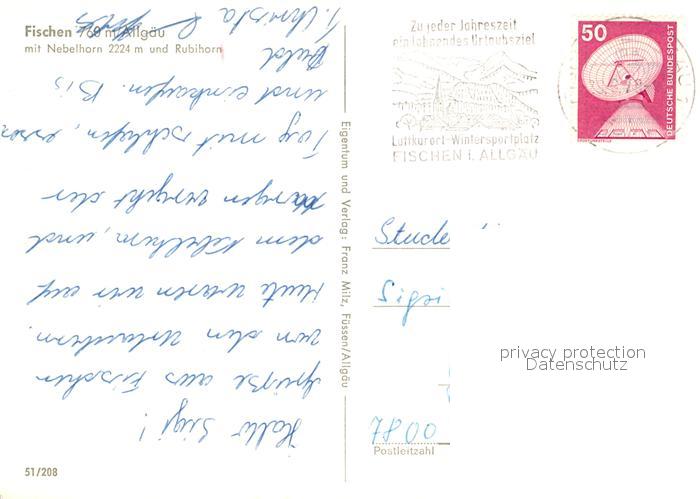 Fischen 760 m Allgäu
mit Nebelhorn 2224 m und Rubihorn
Hallo Sigi!
Grüße aus Fischen
von den Urlaubern.
Heute waren wir auf
dem Nebelhorn, und
morgen vergeht der
Tag mit schlafen, essen
und einkaufen. Bis
bald
Christa
51/208
Eigentum und Verlag: Franz Milz, Füssen/Allgäu
Zu jeder Jahreszeit
ein lohnendes Urlaubsziel
Luftkurort-Wintersportplatz
FISCHEN i. ALLGÄU
50
DEUTSCHE BUNDESPOST
Stude
Sigi
7800
Postleitzahl
privacy protection
Datenschutz